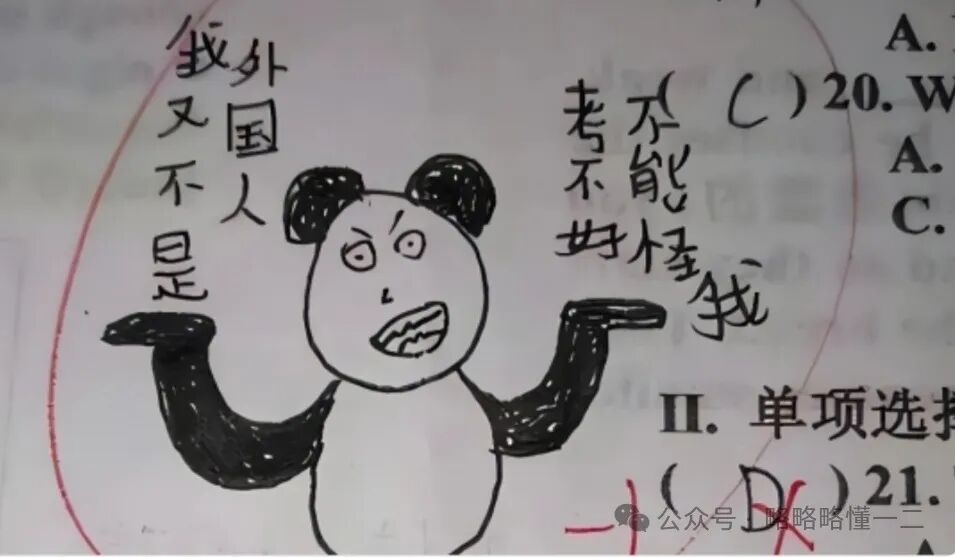 我又不是
外国人
考不好
不能怪我
A.
( C ) 20. W
A.
C.
II. 单项选择
( D ) 21.
公众号 略略略懂一二